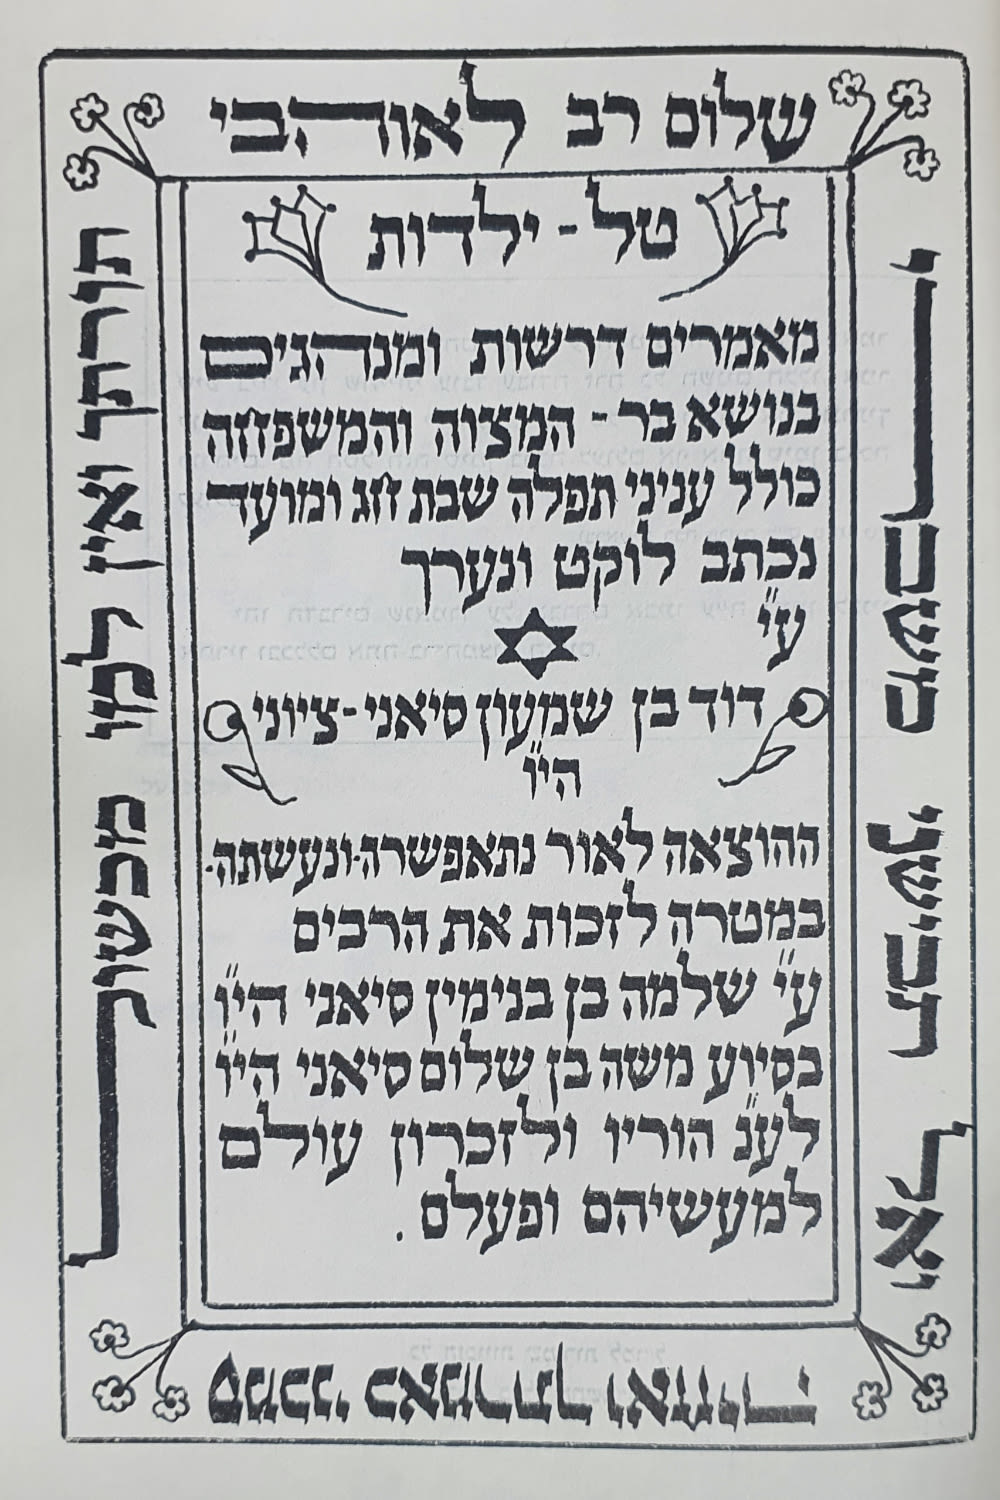 שלום רב לאוהבי
תורתך ואין למו מכשול
סמכני כאמרתך ואחיה
ואל תבישני משברי
טל - ילדות
מאמרים דרשות ומנהגים
בנושא בר - המצוה והמשפחה
כולל עניני תפלה שבת חג ומועד
נכתב לוקט ונערך
ע"י
דוד בן שמעון סיאני - ציוני
הי"ו
ההוצאה לאור נתאפשרה. ונעשתה.
במטרה לזכות את הרבים
ע"י שלמה בן בנימין סיאני הי"ו
בסיוע משה בן שלום סיאני הי"ו
לע"נ הוריו ולזכרון עולם
למעשיהם ופעלם.